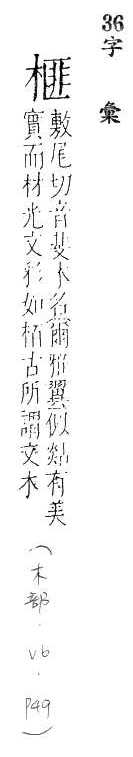 36字彙
榧
敷尾切音斐木名爾雅翼似㸃有美
實而材光文彩如栢古所謂文木
(木部．V6．P49)